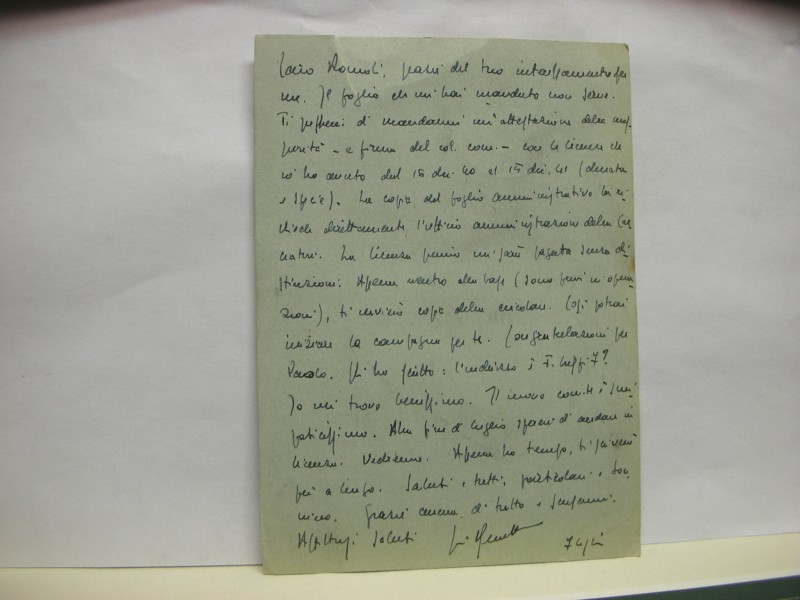 Caro Romoli, grazie del tuo interessamento per
me. Il foglio che mi hai mandato non serve.
Ti pregherei di mandarmi un'attestazione della
- a firma del col. com. - con le licenze che
io ho avuto dal 15 dic. 40 al 15 dic. 41 (durata
e specie). La copia del foglio amministrativo la
direttamente l'ufficio amministrazione della
La licenza premio mi sarà pagata senza di
stinzioni. Appena rientro alla base (sono fuori in opera
zioni), ti invierò copia della circolare. Così potrai
iniziare la campagna per te. Congratulazioni per
Paolo. Gli ho scritto: l'indirizzo è 7?
Io mi trovo benissimo. Il nuovo com.te è sim
paticissimo. Alla fine di luglio spererei di andare in
licenza. Vedremo. Appena ho tempo, ti scriverò
più a lungo. Saluti a tutti, particolari a
Grazie ancora di tutto e scusami.
Affettuosi saluti
7